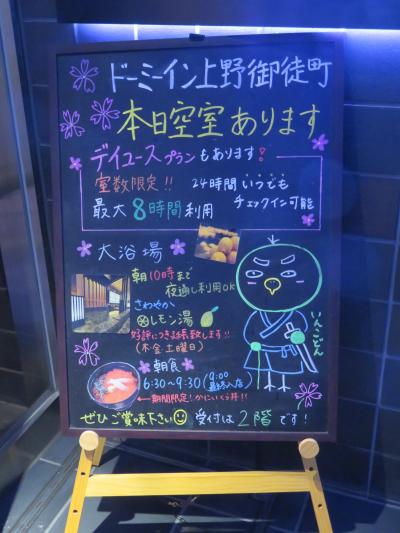 ドーミーイン上野御徒町
本日空室あります
デイユースプランもあります!
室数限定!! 24時間いつでも
最大8時間利用 チェックイン可能
大浴場
朝10時まで
夜通し利用OK
さわやか
レモン湯
好評につき延長致します!!
(木金土曜日)
いんこどん
朝食
6:30~9:30(9:00最終入店)
←期間限定!かにいくら丼!!
ぜひご賞味下さい 受付は2階です!